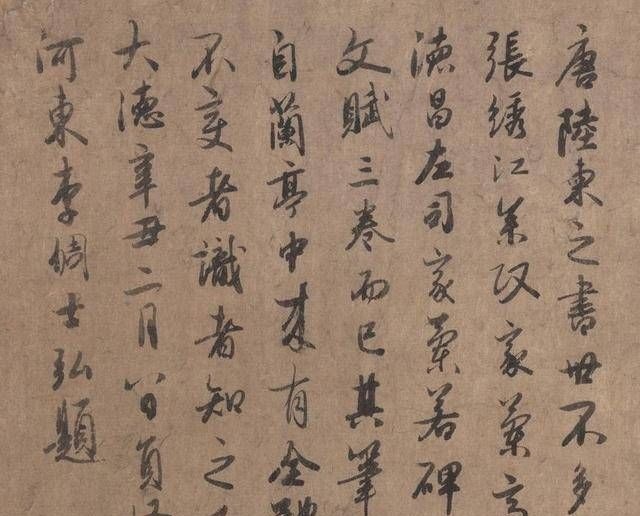 唐陸東之書世不多
張綉江參政家蘭亭
德昌左司家蘭若碑
文賦三卷而已其筆
自蘭亭中來有全
不變者識者知之
大德辛丑二月八日員
河東李倜士弘題